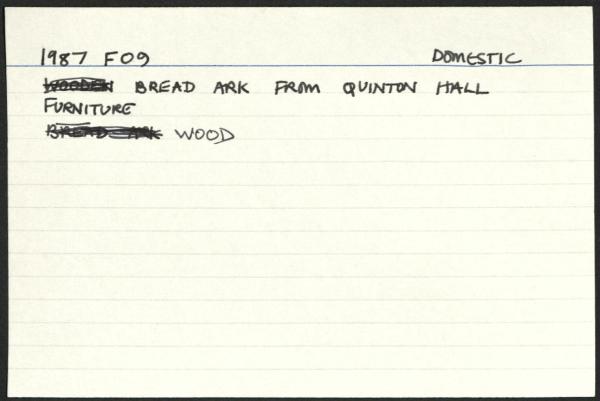 1987 F09 DOMESTIC
WOODEN BREAD ARK FROM QUINTON HALL
FURNITURE
BREAD ARK WOOD